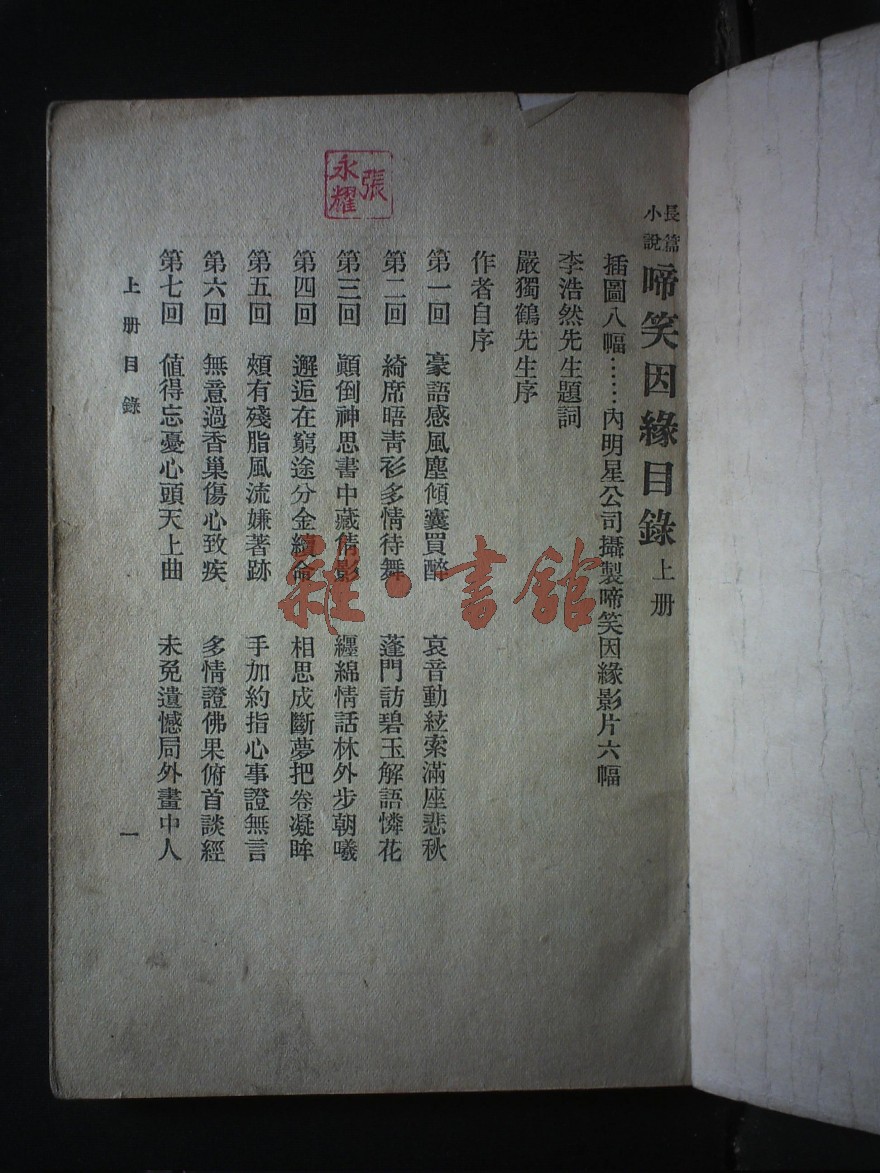 長篇小說 啼笑因緣目錄 上册
插圖八幅……內明星公司攝製啼笑因緣影片六幅
李浩然先生題詞
嚴獨鶴先生序
作者自序
第一回 豪語感風塵傾囊買醉 哀音動絃索滿座悲秋
第二回 綺席晤青衫多情待舞 蓬門訪碧玉解語憐花
第三回 顚倒神思書中藏倩影 纏綿情話林外步朝曦
第四回 邂逅在窮途分金續命 相思成斷夢把卷凝眸
第五回 頗有殘脂風流嫌著跡 手加約指心事證無言
第六回 無意過香巢傷心致疾 多情證佛果俯首談經
第七回 値得忘憂心頭天上曲 未免遺憾局外畫中人
上册目錄
一
張永耀
雜·書館